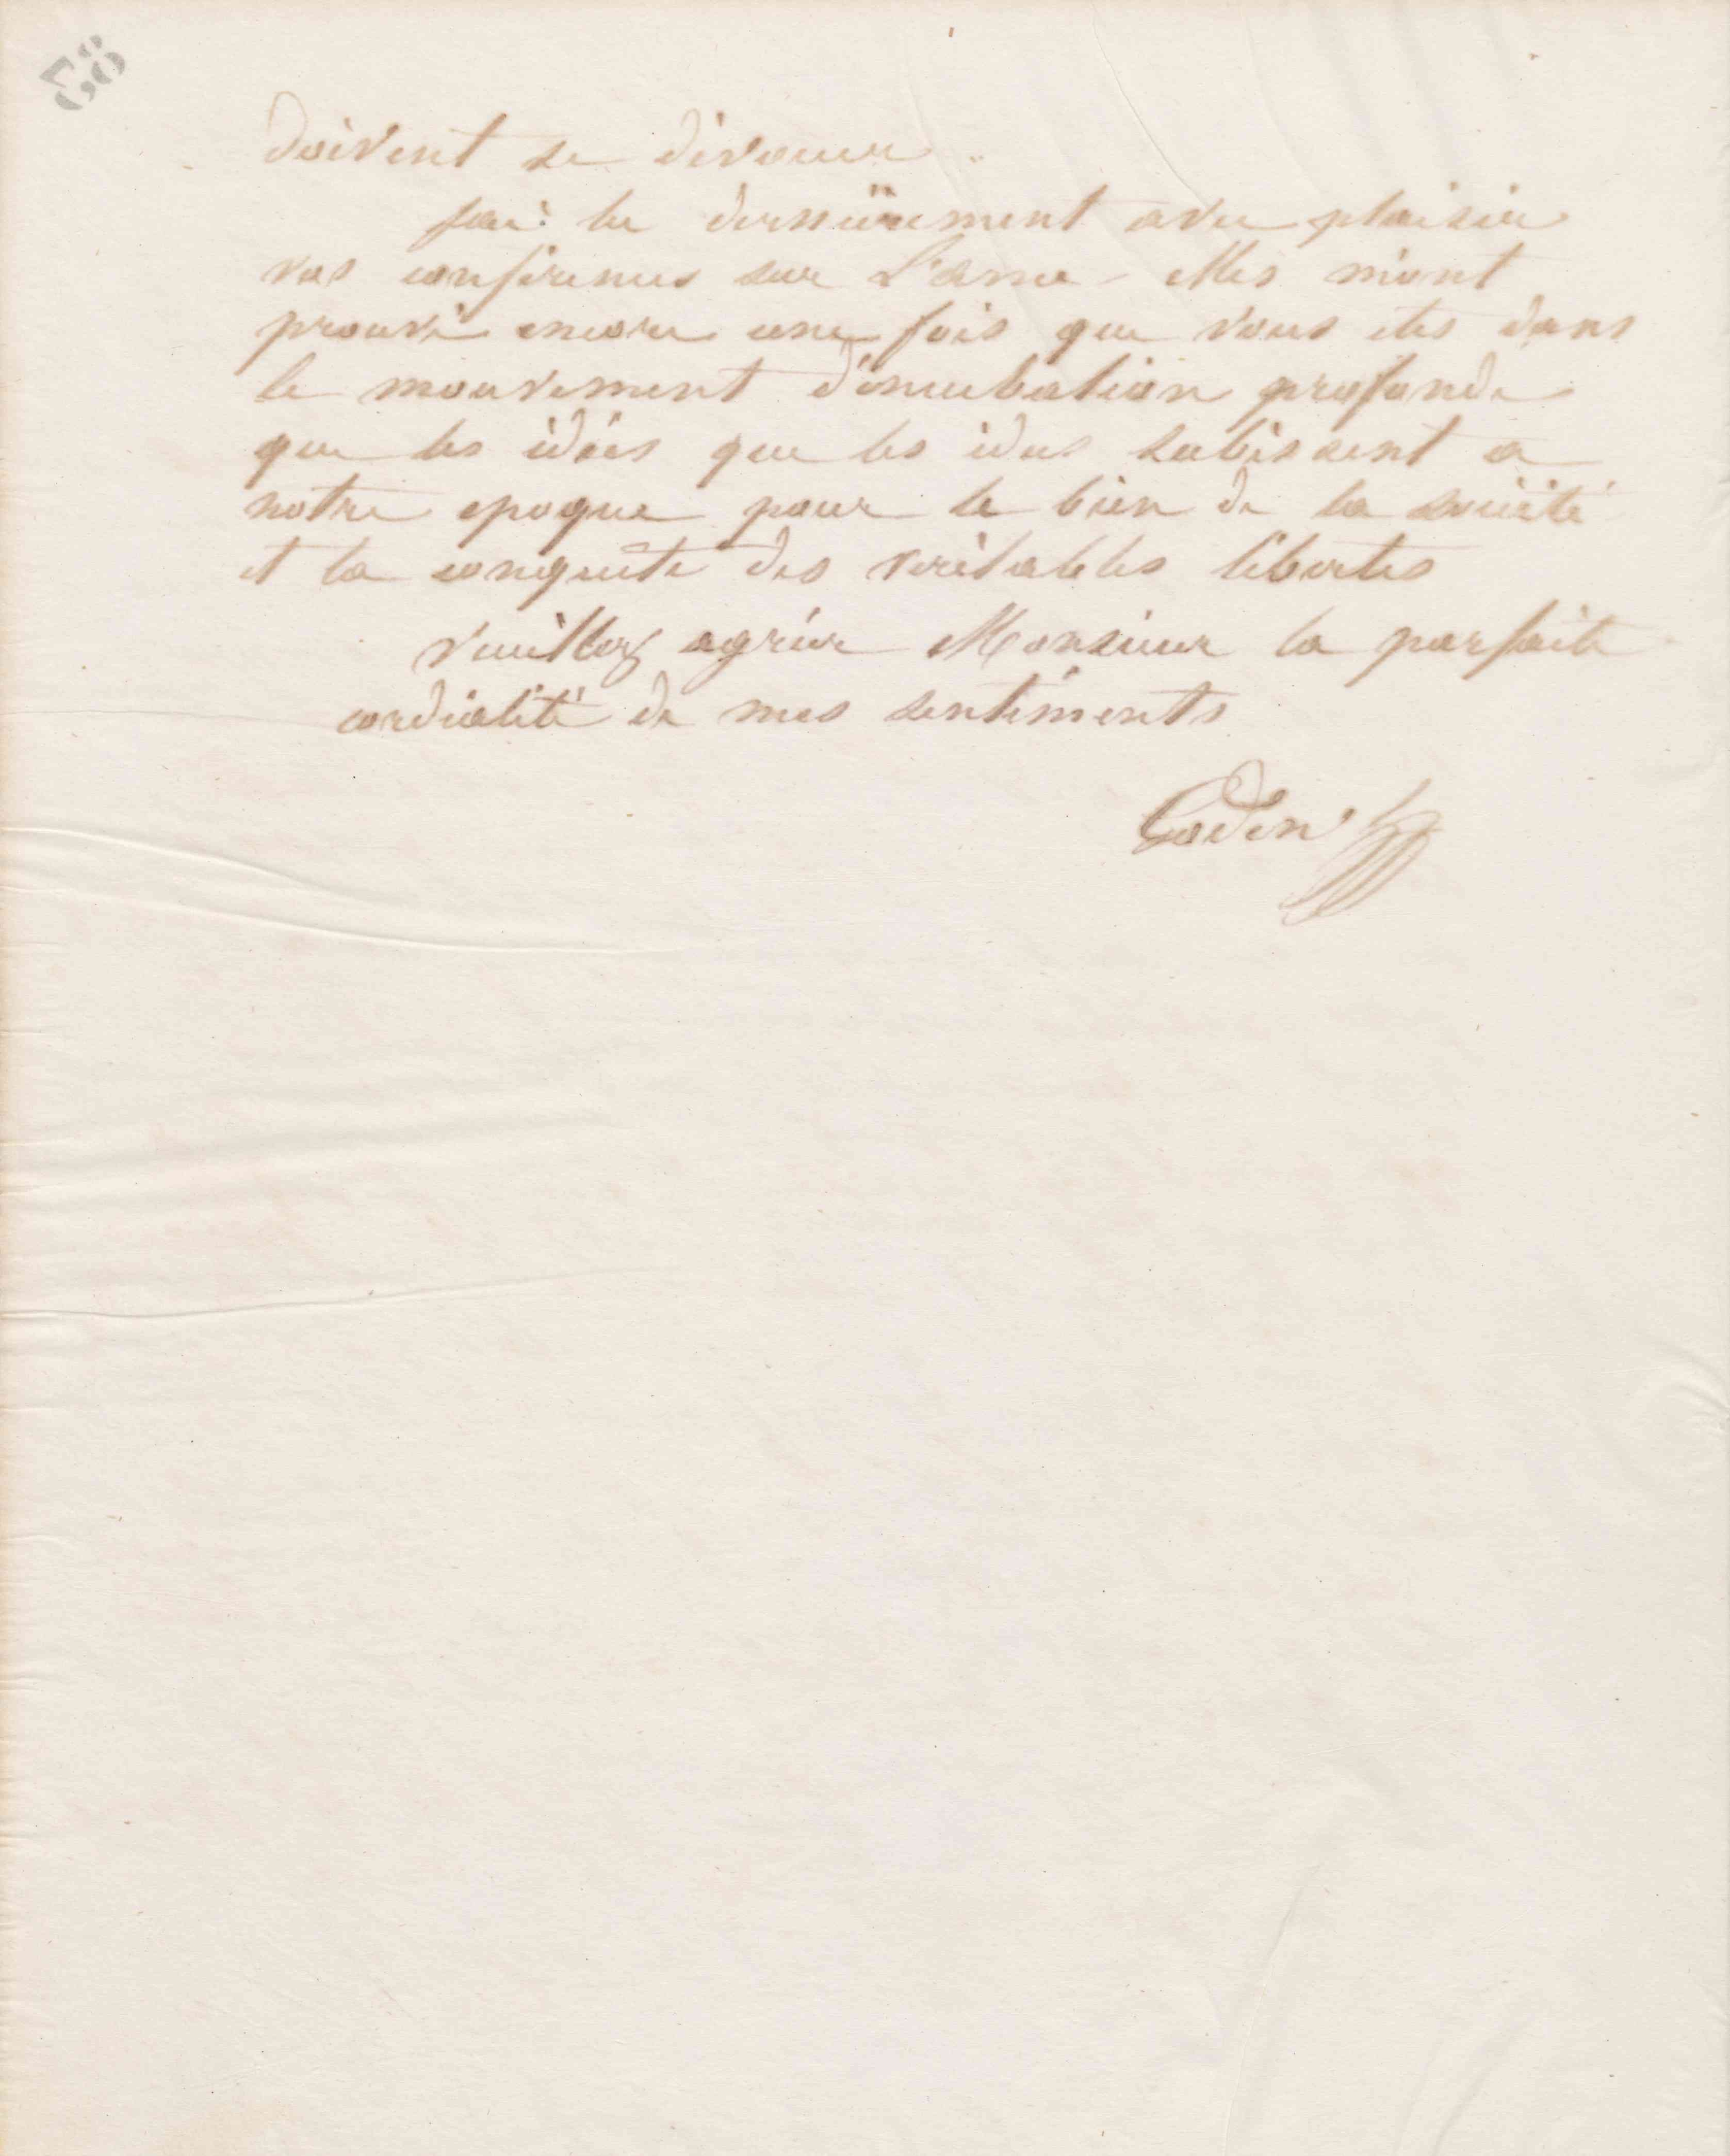 83
doivent se dévouer.
j'ai lu dernièrement avec plaisir
vos conférences sur L'ame - Elles m'ont
prouvé encore une fois que vous etes dans
le mouvement d'incubation profonde
que les idées que les idees subissent a
notre epoque pour le bien de la société
et la conquete des veritables libertes
Veuillez agréer Monsieur la parfaite
cordialité de mes sentiments
Godin